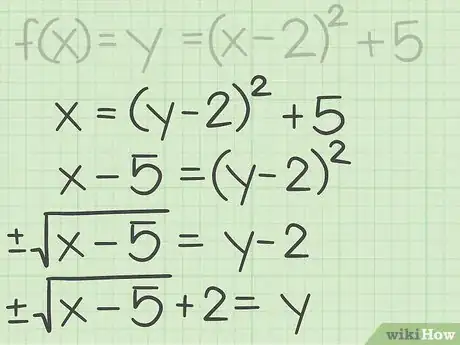 f(x) = y = (x-2)² + 5
x = (y-2)² + 5
x - 5 = (y-2)²
±√(x-5) = y-2
±√(x-5) + 2 = y
wikiHow